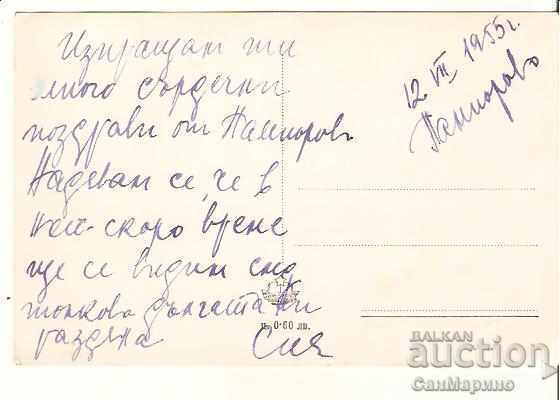 Изпращам ти
много сърдечни
поздрави от Пампорово
Надевам се, че в
най-скоро време
ще се видим след
толкова дългата ни
раздяла
12 VII 1955 г.
Пампорово
ц. 0·60 лв.
БАЛКАН
auction
СанМарино